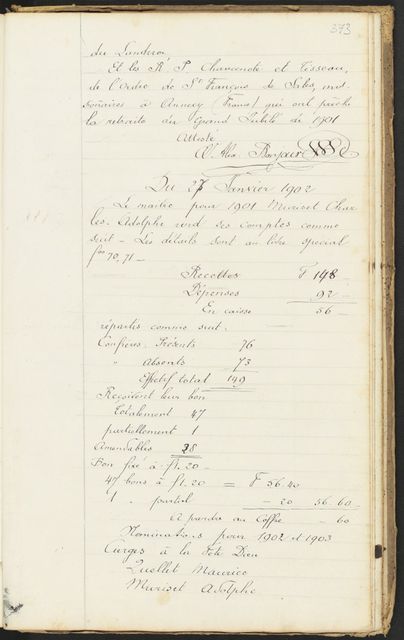 373
du Landeron
Et les R. P. Charconet et Tisseau,
de l'ordre de St François de Sales, mis
sionaires à Annecy (France) qui ont prêché
la retraite du Grand Jubilé de 1901
Attesté
Alex. Bonjour
Du 27 Janvier 1902
Le maitre pour 1901 Muriset Char
les-Adolphe rend ses comptes comme
suit – Les détails sont au livre special
fos 70, 71 –
Recettes F 148 –
Dépenses 92 –
En caisse 56 –
répartis comme suit.
Confrères Présents 76
" Absents 73
Effectif total 149
Reçoivent leur bon
Totalement 47
partiellement 1
Amendables 28
Bon fixé à fr. 1.20 –
47 bons à fr. 1.20 = F 56.40
1 " partiel – 20 56.60
A prendre au Coffre – 60
Nominations pour 1902 et 1903
Cierges à la Fête Dieu
Quellet Maurice
Muriset Adolphe